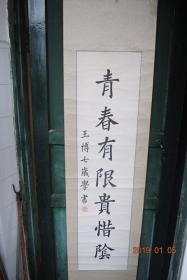 青春有限貴惜陰
王博七歲學書
2019 01 05